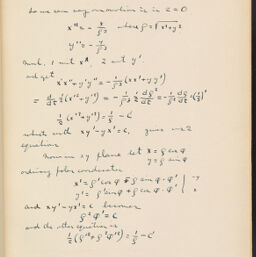 So we can say our motion is in z=0
x'' = -x/ρ³ where ρ=√(x²+y²)
y'' = -y/ρ³
Mult. 1 with x', 2 with y'.
and get x'x''+y'y'' = -1/ρ³ (xx'+yy')
= d/dt ½(x'²+y'²) = -1/ρ³ ½ dρ²/dt = -1/ρ² dρ/dt =
½(x'²+y'²) = 1/ρ - C'
which with xy'-yx'=C, gives us 2
equations
Now in xy plane let x=ρ cos φ
y=ρ sin φ
ordinary polar coordinates
x' = ρ' cos φ - ρ sin φ · φ'
y' = ρ' sin φ + ρ cos φ · φ'
and xy'-yx'=C becomes
ρ²φ' = C
and the other equation is
½(ρ'²+ρ²φ'²) = 1/ρ - C'